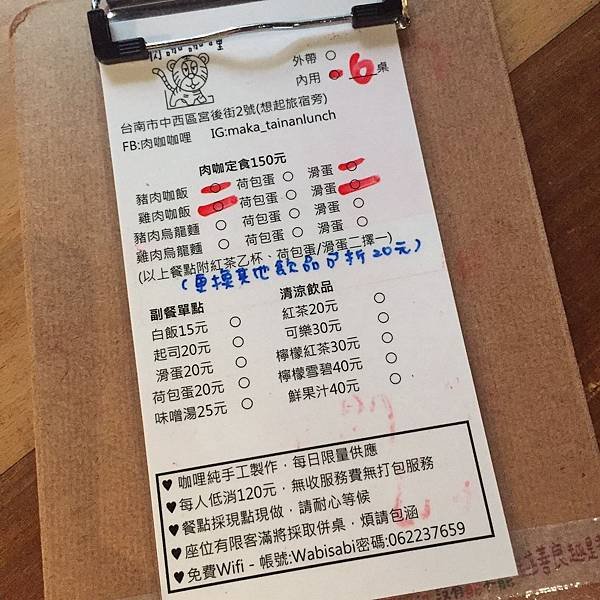 肉咖咖哩
外帶 ○
內用 ○ 6 桌
台南市中西區宮後街2號(想起旅宿旁)
FB:肉咖咖哩 IG:maka_tainanlunch
肉咖定食150元
豬肉咖飯 ○ 荷包蛋 ○ 滑蛋 ○
雞肉咖飯 ○ 荷包蛋 ○ 滑蛋 ○
豬肉烏龍麵 ○ 荷包蛋 ○ 滑蛋 ○
雞肉烏龍麵 ○ 荷包蛋 ○ 滑蛋 ○
(以上餐點附紅茶乙杯、荷包蛋/滑蛋二擇一)
(更換其他飲品可折20元)
副餐單點 清涼飲品
白飯15元 ○ 紅茶20元 ○
起司20元 ○ 可樂30元 ○
滑蛋20元 ○ 檸檬紅茶30元 ○
荷包蛋20元 ○ 檸檬雪碧40元 ○
味噌湯25元 ○ 鮮果汁40元 ○
♥ 咖哩純手工製作，每日限量供應
♥ 每人低消120元，無收服務費無打包服務
♥ 餐點採現點現做，請耐心等候
♥ 座位有限客滿將採取併桌，煩請包涵
♥ 免費Wifi - 帳號:Wabisabi密碼:062237659